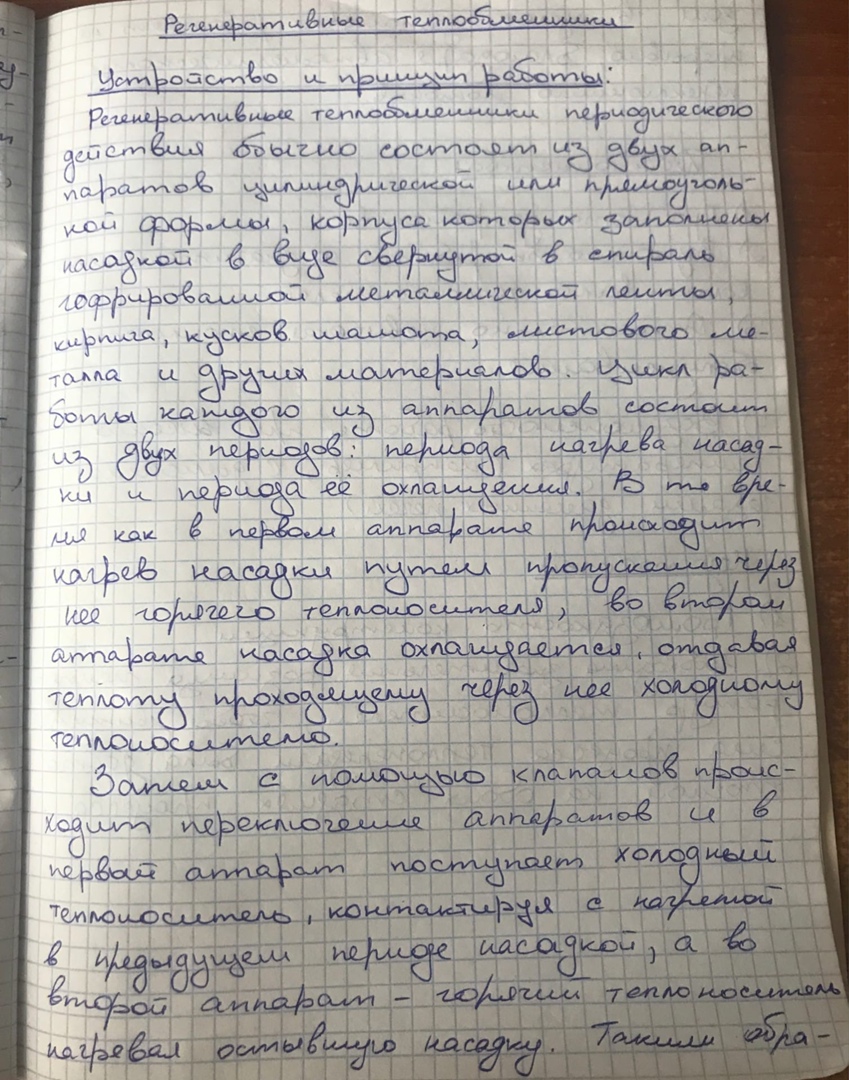 Регенеративные теплообменники
Устройство и принцип работы:
Регенеративные теплообменники периодического
действия обычно состоят из двух ап-
паратов цилиндрической или прямоуголь-
ной формы, корпуса которых заполнены
насадкой в виде свернутой в спираль
гофрированной металлической ленты,
кирпича, кусков шамота, листового ме-
талла и других материалов. Цикл ра-
боты каждого из аппаратов состоит
из двух периодов: периода нагрева насад-
ки и периода её охлаждения. В то вре-
мя как в первом аппарате происходит
нагрев насадки путем пропускания через
нее горячего теплоносителя, во втором
аппарате насадка охлаждается, отдавая
теплоту проходящему через нее холодному
теплоносителю.
Затем с помощью клапанов проис-
ходит переключение аппаратов и в
первый аппарат поступает холодный
теплоноситель, контактируя с нагретой
в предыдущем периоде насадкой, а во
второй аппарат - горячий теплоноситель
нагревал остывшую насадку. Таким обра-